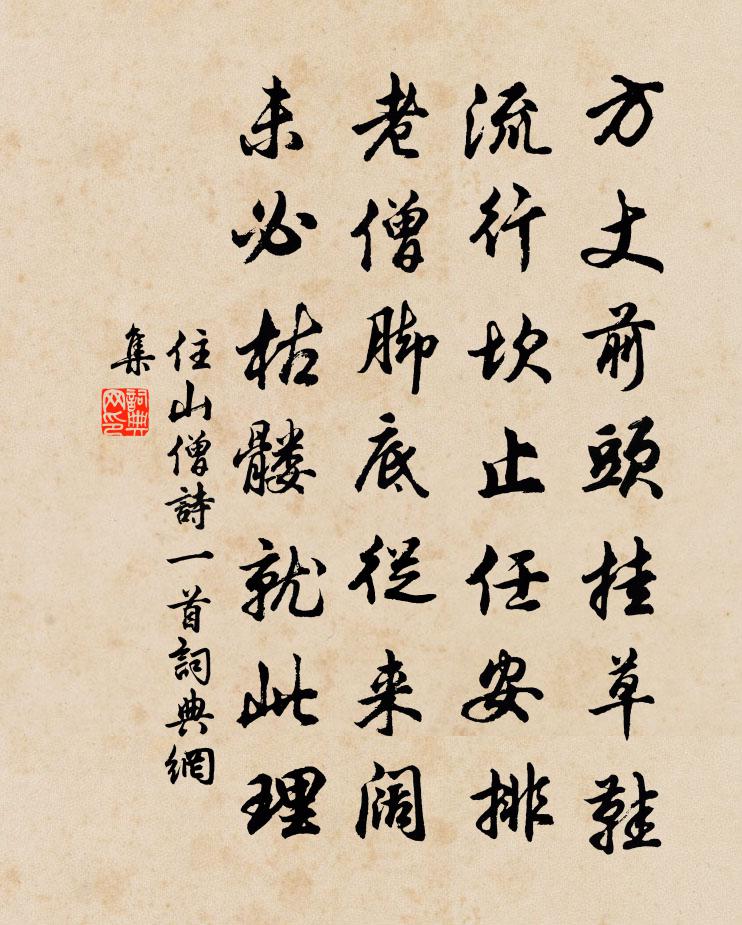 方丈前頭挂草鞋
流行坎止任安排
老僧脚底從来阔
未必枯髏就此理
住山僧詩一首詞典網
集
詞典网印